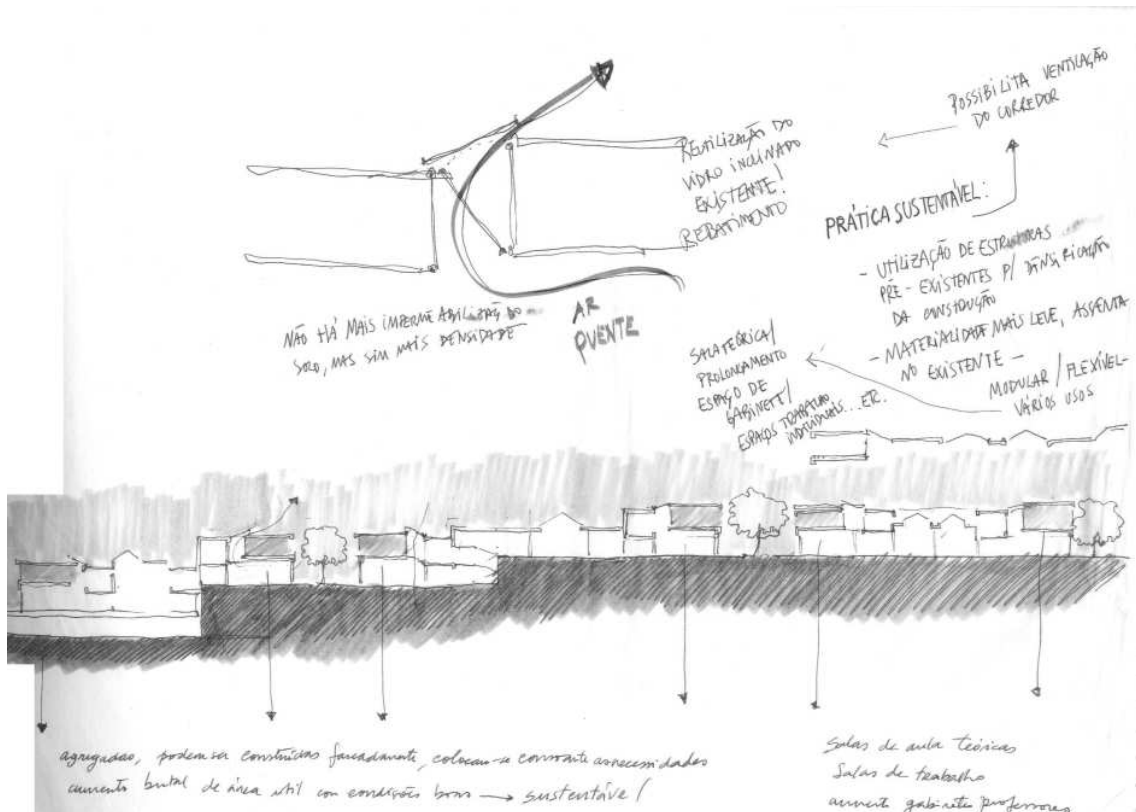 POSSIBILITA VENTILAÇÃO
DO CORREDOR
REUTILIZAÇÃO DO
VIDRO INCLINADO
EXISTENTE!
REBATIMENTO
PRÁTICA SUSTENTÁVEL:
- UTILIZAÇÃO DE ESTRUTURAS
PRÉ-EXISTENTES P/ DENSIFICAÇÃO
DA CONSTRUÇÃO
- MATERIALIDADE MAIS LEVE, ASSENTA
NO EXISTENTE -
MODULAR / FLEXÍVEL-
VÁRIOS USOS
NÃO HÁ MAIS DO
SOLO, MAS SIM MAIS DENSIDADE
AR
QUENTE
SALA TEÓRICA/
PROLONGAMENTO
ESPAÇO DE
GABINETE/
ESPAÇOS TRABALHO
INDIVIDUAIS...
agregadas, podem ser construídas faseadamente, colocam-se consoante as necessidades
aumento brutal de área util com condições boas → sustentável
Salas de aula teóricas
Salas de trabalho
aumento gabinetes professores